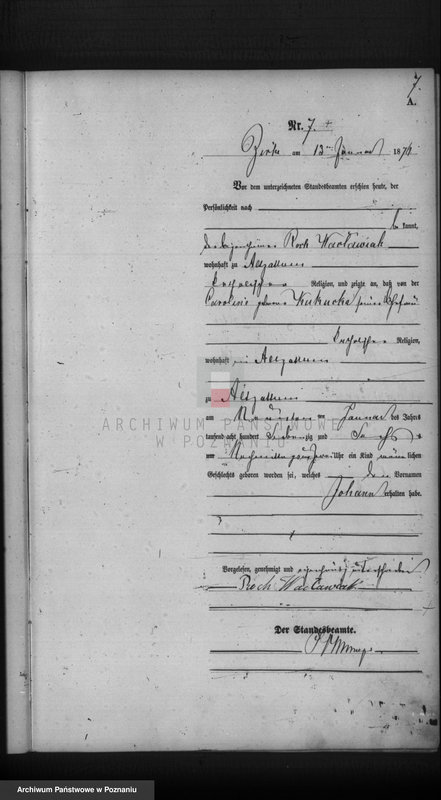 7.
A.
Nr. 7.
Zirke am 13ten Januar 1876
Vor dem unterzeichneten Standesbeamten erschien heute, der
Persönlichkeit nach
be kannt,
der Eigenthümer Roch Wacławiak
wohnhaft zu Altzattum
katholischer Religion, und zeigte an, daß von der
Caroline geborene Kukucka seiner Ehefrau
katholischer Religion,
wohnhaft bei Altzattum
ARCHIWUM PAŃSTWOWE
W POZNANIU
zu Altzattum
am Neunten ten Januar des Jahres
tausend acht hundert siebenzig und sechs
um Nachmittags zwei Uhr ein Kind männ lichen
Geschlechts geboren worden sei, welches den Vornamen
Johann erhalten habe.
Vorgelesen, genehmigt und eigenhändig unterschrieben
Roch Wacławiak
Der Standesbeamte.
Archiwum Państwowe w Poznaniu